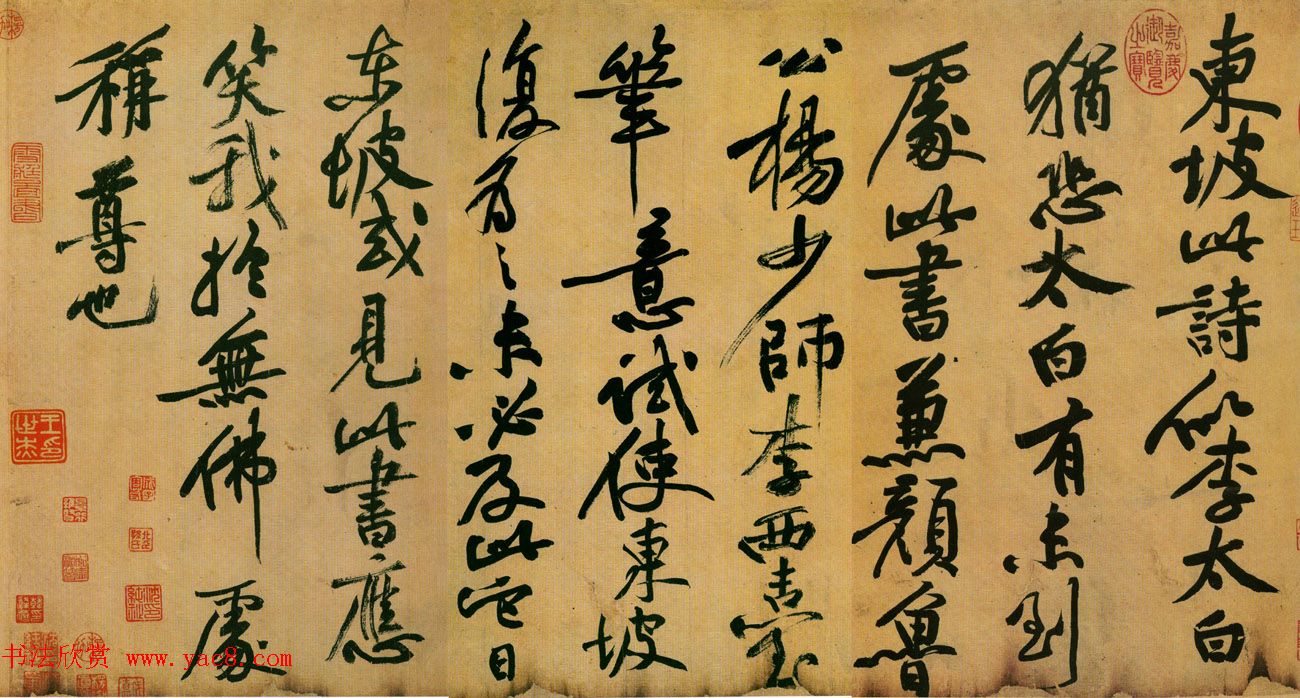 東坡此詩似李太白
猶恐太白有未到
處此書兼顔魯
公楊少師李西臺
筆意試使東坡
復為之未必及此它日
東坡或見此書應
笑我於無佛處
稱尊也
嘉慶御覽之寶
书法欣赏 www.yac8.com